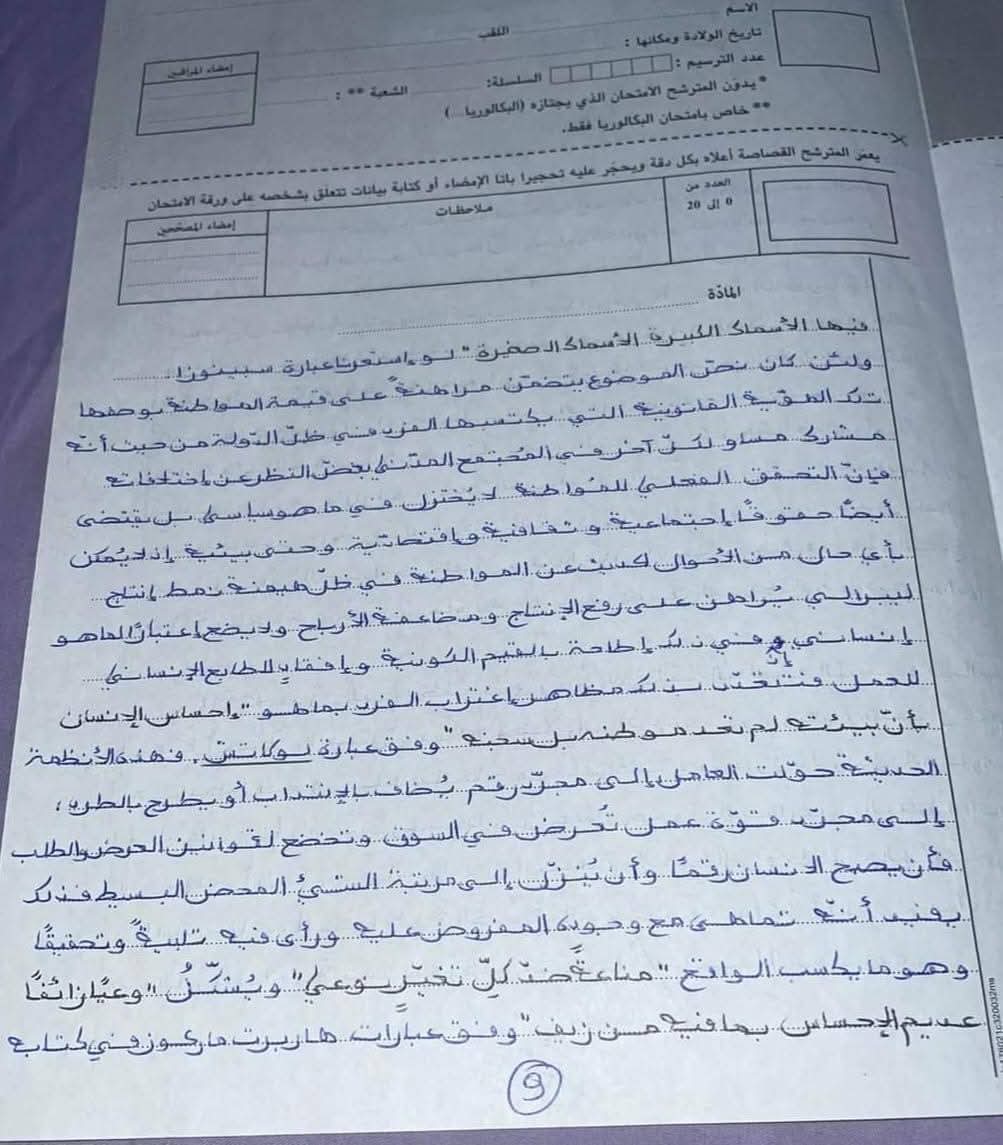 الاسم
اللقب
تاريخ الولادة ومكانها :
عدد الترسيم * :
السلسلة:
الشعبة ** :
إمضاء المراقبين
* يدوّن المترشح الامتحان الذي يجتازه (البكالوريا ...)
** خاص بامتحان البكالوريا فقط.
يعمّر المترشح القصاصة أعلاه بكل دقة ويحجّر عليه تحجيرا باتا الإمضاء أو كتابة بيانات تتعلق بشخصه على ورقة الامتحان
العدد من
0 إلى 20
ملاحظات
إمضاء المصححين
المادّة
فيها الأسماك الكبيرة الأسماك الصغيرة" لو استعرنا عبارة سبينوزا.
ولئن كان نص الموضوع يتضمّن مراهنة على قيمة المواطنة بوصفها
تلك الصفة القانونية التي يكتسبها الفرد في ظل الدولة من حيث أنّه
مشارك مساو لكلّ آخر في المجتمع المدني بغض النظر عن اختلافاته
فإنّ التحقق الفعلي للمواطنة لا يُختزل في ما هو سياسي بل يقتضي
أيضا حقوقا اجتماعية و ثقافية واقتصادية وحتى بيئية إذ لا يُمكن
بأي حال من الأحوال الحديث عن المواطنة في ظل هيمنة نمط إنتاج
ليبرالي يُراهن على رفع الإنتاج ومضاعفة الأرباح ولا يضع اعتبارا لما هو
إنساني وفي ذلك إطاحة بالقيم الكونية وافقادا للطابع الإنساني
للعمل فتتحدّد بذلك مظاهر اغتراب الفرد بما هو "إحساس الإنسان
بأنّ بيئته لم تعد موطنه بل سجنه" وفق عبارة لوكاتش، فهذه الأنظمة
الحديثة حوّلت العامل إلى مجرّد رقم يُخاطب بالانتداب أو يطرح بالطرد،
إلى مجرّد قوّة عمل تُعرض في السوق وتخضع لقوانين العرض والطلب
فأن يصبح الإنسان رقما وأن يُنزّل إلى مرتبة الشيء المحض البسيط فذلك
يفيد أنّه تماهى مع وجوده المفروض عليه ورأى فيه تلبية وتحقيقا
وهو ما يكسب الواقع "مناعة ضدّ كلّ تغيّر نوعي" ويُشكّل "وعيا زائفا
عديم الإحساس بما فيه من زيف" وفق عبارات هاربرت ماركوز في كتابه
9